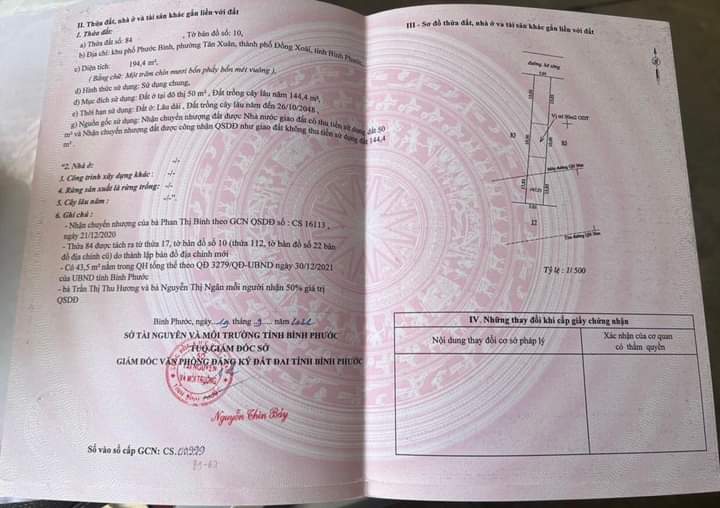 II. Thửa đất, nhà ở và tài sản khác gắn liền với đất
1. Thửa đất:
a) Thửa đất số: 84 , Tờ bản đồ số: 10,
b) Địa chỉ: khu phố Phước Bình, phường Tân Xuân, thành phố Đồng Xoài, tỉnh Bình Phước,
c) Diện tích: 194,4 m²,
( Bằng chữ: Một trăm chín mươi bốn phẩy bốn mét vuông ),
d) Hình thức sử dụng: Sử dụng chung,
đ) Mục đích sử dụng: Đất ở tại đô thị 50 m² , Đất trồng cây lâu năm 144,4 m²,
e) Thời hạn sử dụng: Đất ở: Lâu dài , Đất trồng cây lâu năm đến 26/10/2048 ,
g) Nguồn gốc sử dụng: Nhận chuyển nhượng đất được Nhà nước giao đất có thu tiền sử dụng đất 50
m² và Nhận chuyển nhượng đất được công nhận QSDĐ như giao đất không thu tiền sử dụng đất 144,4
m² .
"2. Nhà ở: -/-
3. Công trình xây dựng khác : -/-
4. Rừng sản xuất là rừng trồng: -/-
5. Cây lâu năm : -/-".
6. Ghi chú :
- Nhận chuyển nhượng của bà Phan Thị Bình theo GCN QSDĐ số : CS 16113 ,
ngày 21/12/2020
- Thửa 84 được tách ra từ thửa 17, tờ bản đồ số 10 (thửa 112, tờ bản đồ số 22 bản
đồ địa chính cũ) do thành lập bản đồ địa chính mới
- Có 43,5 m² nằm trong QH tổng thể theo QĐ 3279/QĐ-UBND ngày 30/12/2021
của UBND tỉnh Bình Phước
- bà Trần Thị Thu Hương và bà Nguyễn Thị Ngân mỗi người nhận 50% giá trị
QSDĐ
Bình Phước, ngày 19 tháng 9 năm 2022
SỞ TÀI NGUYÊN VÀ MÔI TRƯỜNG TỈNH BÌNH PHƯỚC
TUQ.GIÁM ĐỐC SỞ
GIÁM ĐỐC VĂN PHÒNG ĐĂNG KÝ ĐẤT ĐAI TỈNH BÌNH PHƯỚC
SỞ
TÀI NGUYÊN
VÀ MÔI TRƯỜNG
Nguyễn Thìn Bảy
Số vào sổ cấp GCN: CS.00999
III - Sơ đồ thửa đất, nhà ở và tài sản khác gắn liền với đất
Tỷ lệ : 1/ 500
IV. Những thay đổi khi cấp giấy chứng nhận
Nội dung thay đổi cơ sở pháp lý
Xác nhận của cơ quan
có thẩm quyền